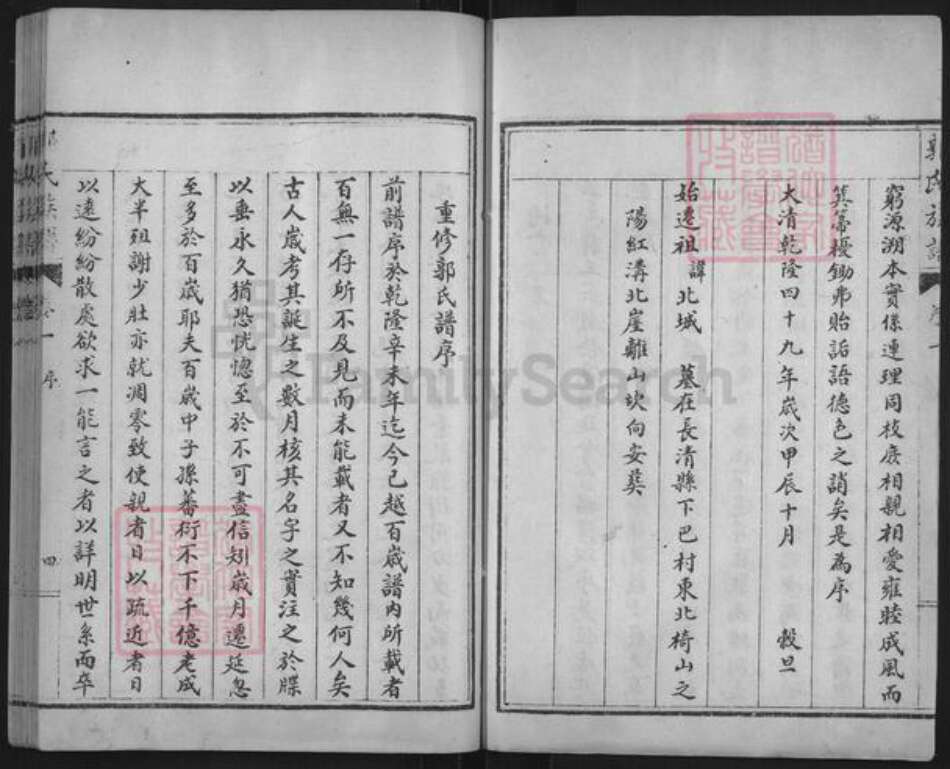 窮源溯本實係連理同枝庶相親相愛雍睦成風而
箕箒耰鋤弗貽詬語德色之誚矣是為序
大清乾隆四十九年歲次甲辰十月 穀旦
始遷祖諱北城 墓在長清縣下巴村東北椅山之
陽紅溝北崖離山坎向安葬
重修郭氏譜序
前譜序於乾隆辛未年迄今已越百歲譜內所載者
百無一存所不及見而未能載者又不知幾何人矣
古人歲考其誕生之數月核其名字之實注之於牒
以垂永久猶恐恍惚至於不可盡信矧歲月遷延忽
至多於百歲耶夫百歲中子孫蕃衍不下千億老成
大半殂謝少壯亦就凋零致使親者日以疏近者日
以遠紛紛散處欲求一能言之者以詳明世系而卒
氏族譜 卷一 序 四
郭氏族譜 序
FamilySearch